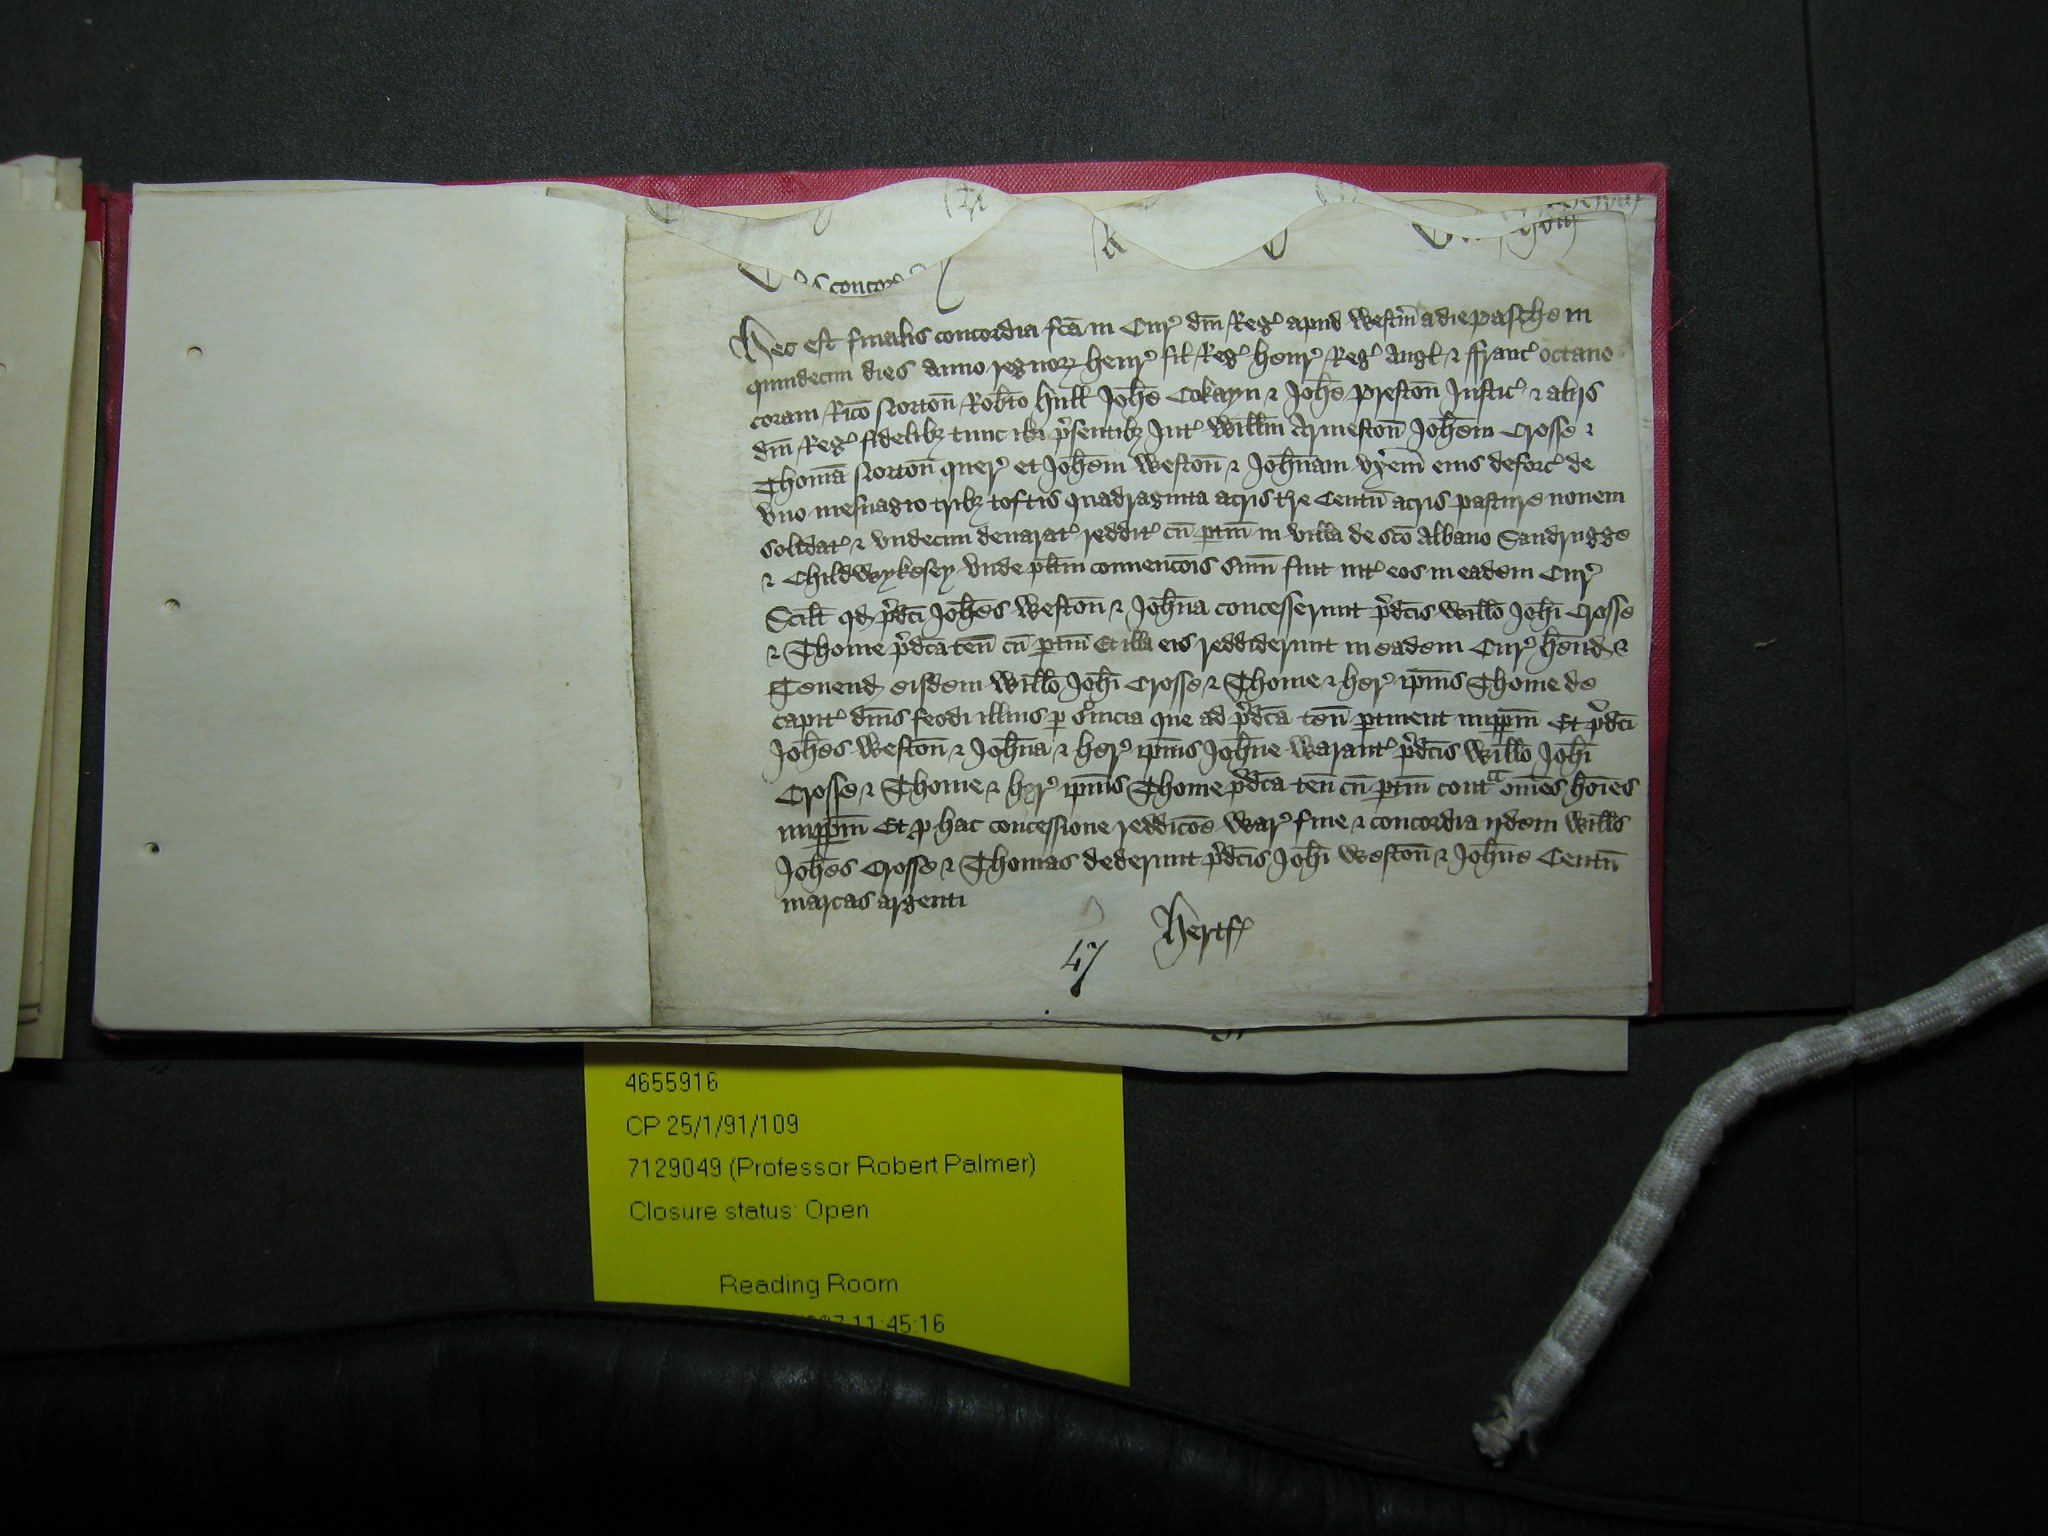 concor
Hec est finalis concordia fc̄a in Cur' dm̄ Reg' apud Westm̄ a die pasche in
quindecim dies anno regnoꝝ Henr' fil' Reg' Henr' Reg' Angl' ⁊ ffranc' octavo
coram Ric̄o Norton̄ Rob̄to Hull Joh̄e Cokayn ⁊ Joh̄e Preston̄ Justic' ⁊ aliis
dm̄ Reg' fidelibꝫ tunc ibi p̄sentibꝫ Int' Willm̄ Armeston̄ Joh̄em Crosse ⁊
Thomā Norton̄ quer' et Joh̄em Weston̄ ⁊ Joh̄nam vx̄em eius deforc' de
vno mesuagio tribꝫ toftis quadraginta acris t̄re Centū acris pasture novem
solidat' ⁊ vndecim denarat' reddit' cū ptin̄ in villa de sc̄o Albano Sandrugge
⁊ Childwykesey Vnde pl̄itm convenc̄ois sum̄ fuit int' eos in eadem Cur'
Scilt̄ qd p̄dc̄i Joh̄es Weston̄ ⁊ Joh̄na concesserunt p̄dc̄is Willo̅ Joh̄i Crosse
⁊ Thome p̄dc̄a ten̄ cū ptin̄ Et illa eis reddiderunt in eadem Cur' hend̄ ⁊
Tenend eisdem Willo̅ Joh̄i Crosse ⁊ Thome ⁊ her' ip̄ius Thome de
capit' dn̄is feodi illius p s̄uicia que ad p̄dc̄a ten̄ ptinent inppm̄ Et p̄dc̄i
Joh̄es Weston̄ ⁊ Joh̄na ⁊ her' ip̄ius Joh̄ne Warant' p̄dc̄is Willo̅ Joh̄i
Crosse ⁊ Thome ⁊ her' ip̄ius Thome p̄dc̄a ten̄ cū ptin̄ contᵃ om̄es hoīes
inppm̄ Et p hac concessione reddic̄oe War' fine ⁊ concordia ijdem Wills̄
Joh̄es Crosse ⁊ Thomas dederunt p̄dc̄is Joh̄i Weston̄ ⁊ Joh̄ne Centū
marcas argenti
Hertf'
47
4655916
CP 25/1/91/109
7129049 (Professor Robert Palmer)
Closure status: Open
Reading Room
11:45:16